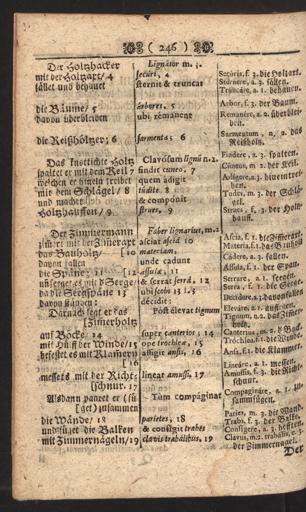 ( 246 )
Der Holtzhacker
mit der Holtzaxt/ 4
fället und behauet
die Bäume/ 5
davon überbleiben
die Reißhöltzer; 6
Das knottichte Holtz
spaltet er mit dem Keil 7
welchen er hinein treibet
mit dem Schlägel/ 8
und machet
Holtzhauffen/ 9
Der Zimmermann
zimmert mit der Zimeraxt
das Bauholtz/ [10
davon fallen
die Späne; 11 [12
mit der Säge/
da die Segspäne 13
davon stäuben:
Darnach legt er das
[Zimerholtz
auf Böcke/ 14
mit Hülff der Winde/ 15
befestet es mit Klamern
[16
messets mit der Richt-
[schnur. 17
Alsdann paaret er (fü
[get) zusammen
die Wände/ 18
und füget die Balken
mit Zimmernägeln/ 19
Lignator m. 3.
securi, 4
sternit & truncat
arbores, 5
ubi remanent
sarmenta; 6
Clavôsum lignũ n. 2.
findit cuneo, 7
quem adigit
tudite, 8
& componit
strues, 9
Faber lignarius, m. 2.
ascia 10
materiam,
unde cadunt
assulæ; 11
& serrat serrâ, 12
ubi scobs 13
decidit:
Pòst elevat tignum
super canterios; 14
ope trochleæ, 15
affigit ansis, 16
lineat amussi, 17
Tum compaginat
parietes, 18
& consigit trabes
clavis trabalibus, 19
Secūris, f. 3. die Holtzaxt.
Sternere, a. 3. fällen.
Truncāre, a. 1. behauen.
Arbor, f. 3. der Baum.
Remanēre, a. 2. überbleiben.
Sarmentum, n. 2. das
Reißholtz.
Findere, a. 3. spalten.
Cuneus, m. 2. der Keil.
Adigere, a. 3. hineintreiben.
Tudes, m. 3. der Schlägel.
Strues, f. 3. der Holtzhauff.
Ascia, f. 1. die Zimeraxt.
Materia, f. 1. das Bauholtz
Cadere, a. 3. fallen.
Assula, f. 1. der Span.
Serrare, a. 1. seegen.
Serra, f. 1. die Seege.
Elevare, a. 1. aufheben.
Tignum, n. 2. das Zimerholtz.
Canterius, m. 2. der Bock.
Trochlea, f. 1. die Winde.
Ansa, f. 1. die Klammer.
Lineāre, a. 1. messen.
Amussis, f. 3. die Richtschnur.
Compaginare, a. 1. zusammenfügen.
Paries, m. 3. die Wand.
Trabs, f. 3. der Balken.
Consigere, a. 3. hefften.
Clavus, m. 2. trabalis, c. 3.
der Zimmernagel.
Det